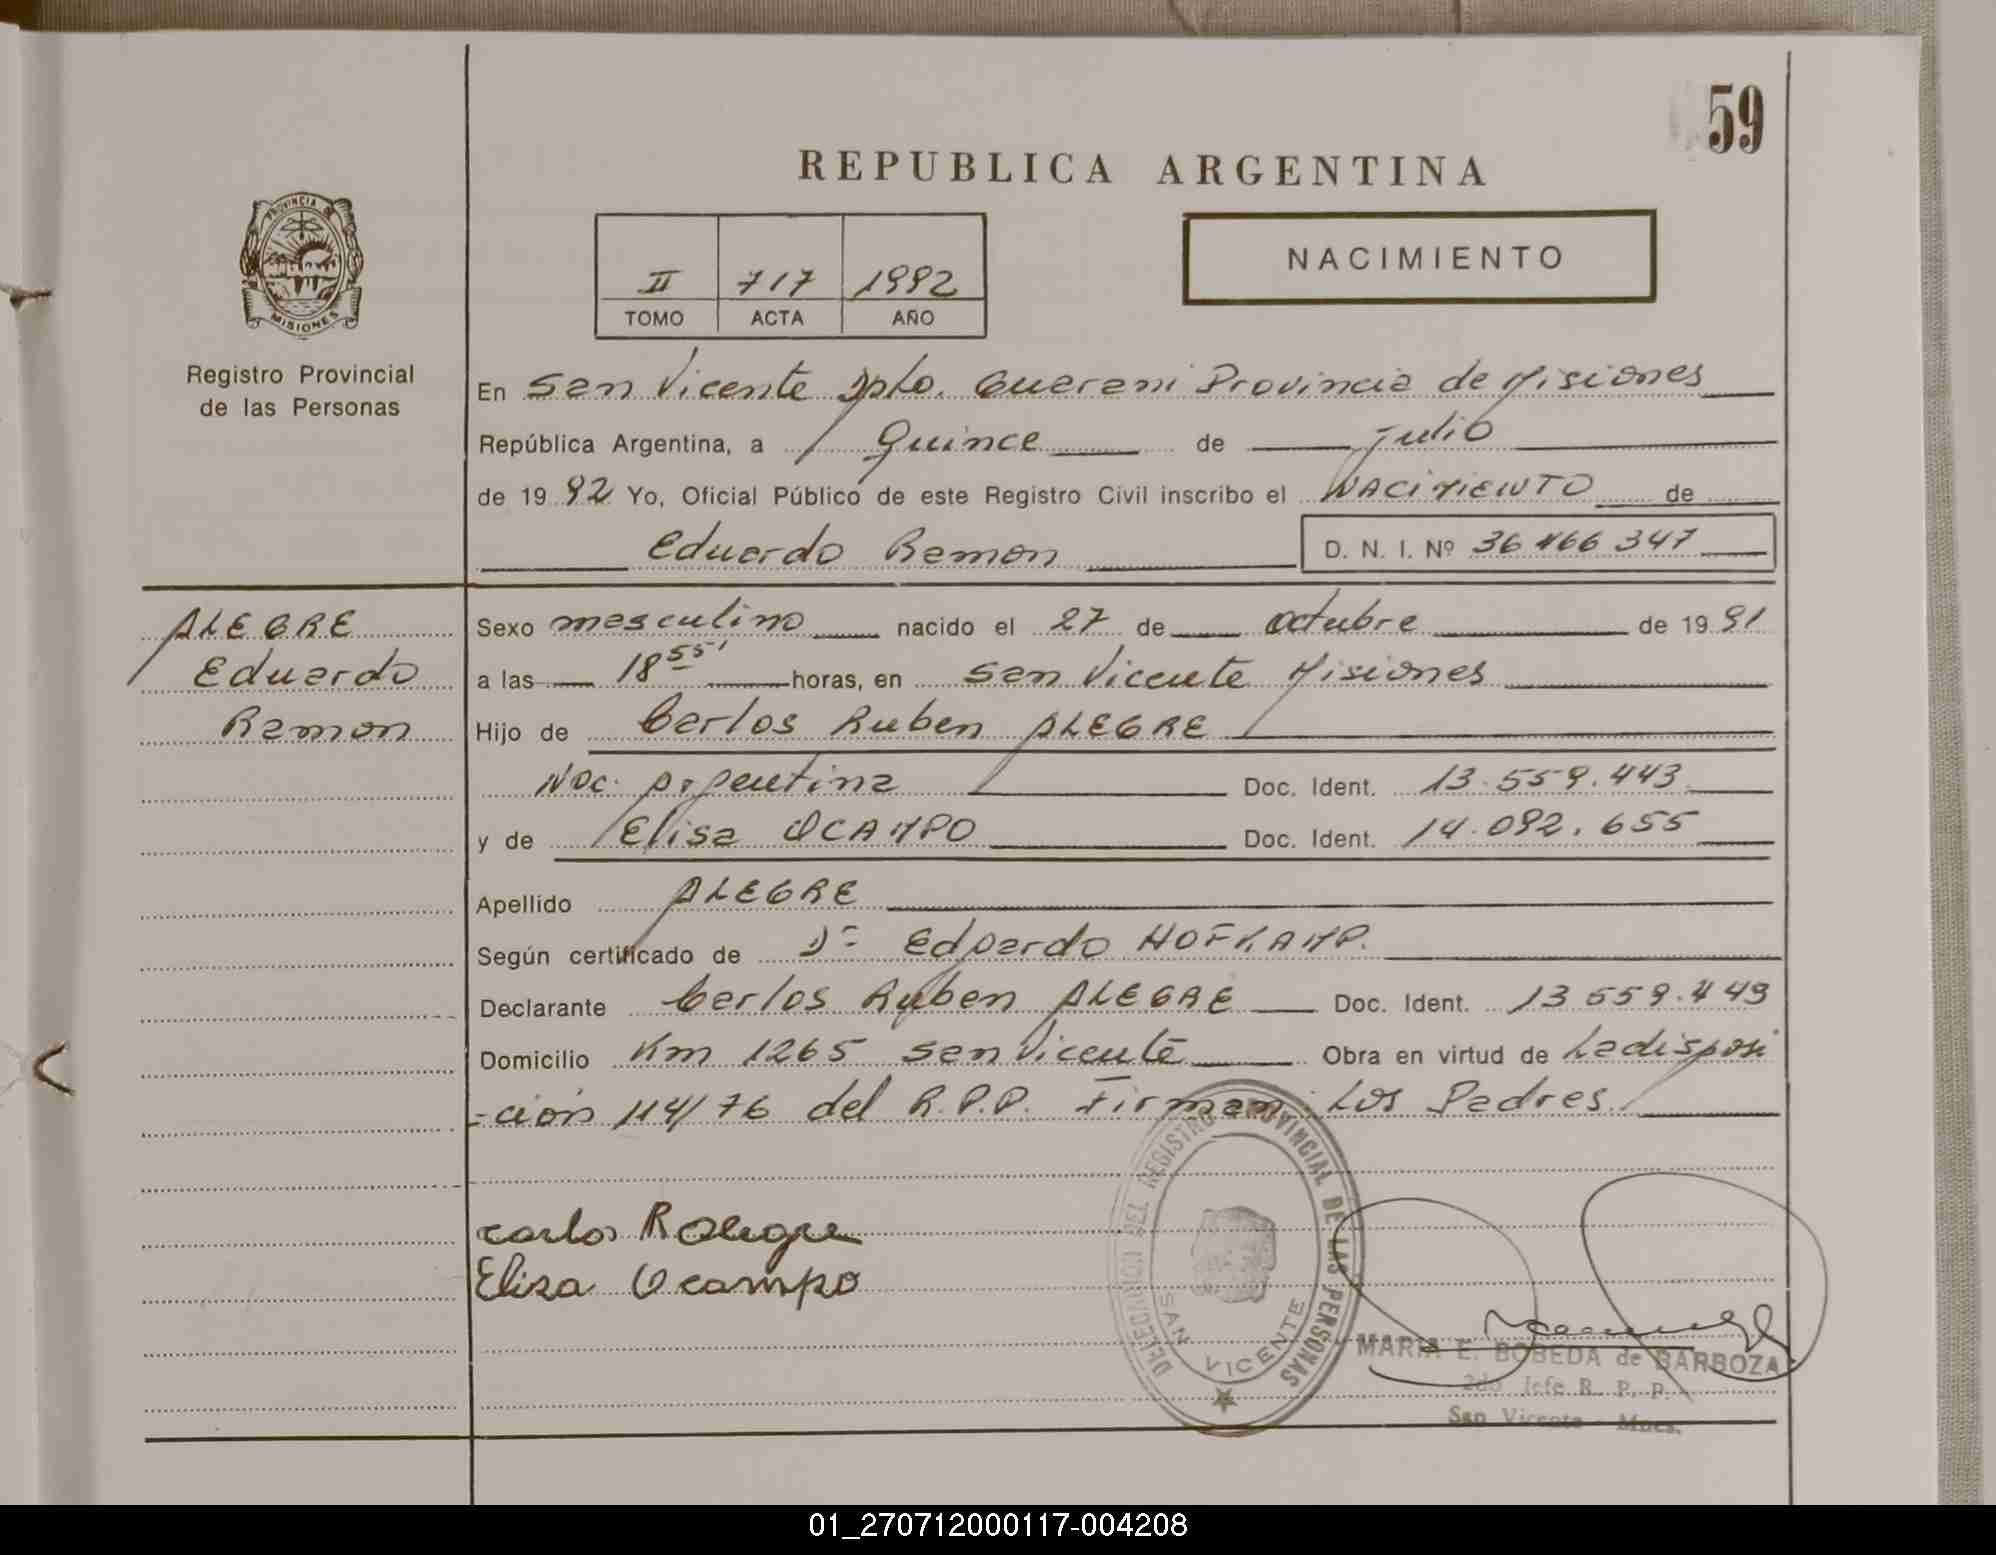 59
REPUBLICA ARGENTINA
PROVINCIA DE
MISIONES
Registro Provincial
de las Personas
II 717 1992
TOMO ACTA AÑO
NACIMIENTO
En San Vicente Dpto. Guarani Provincia de Misiones
República Argentina, a Quince de julio
de 19 92 Yo, Oficial Público de este Registro Civil inscribo el NACIMIENTO de
Eduardo Ramon D. N. I. Nº 36 466 347
ALEGRE
Eduardo
Ramon
Sexo masculino nacido el 27 de octubre de 19 91
a las 18 55' horas, en San Vicente Misiones
Hijo de Carlos Ruben ALEGRE
Nac. Argentina Doc. Ident. 13.559.443
y de Elisa OCAMPO Doc. Ident. 14.092.655
Apellido ALEGRE
Según certificado de Dr Edgardo HOFKAMP.
Declarante Carlos Ruben ALEGRE Doc. Ident. 13 559.443
Domicilio Km 1265 San Vicente Obra en virtud de La disposi
-ción 114/76 del R.P.P. Firman: Los Padres
Carlos R Alegre
Elisa Ocampo
DELEGACION DEL REGISTRO PROVINCIAL DE LAS PERSONAS
SAN VICENTE
MARIA E. BOBEDA de BARBOZA
2do. Jefe R. P. P.
San Vicente - Mnes.
01_270712000117-004208